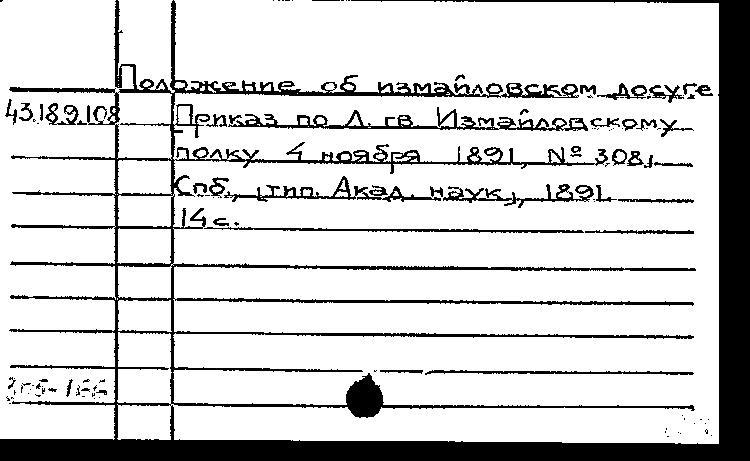 Положение об измайловском досуге
43.18.9.108 [Приказ по Л. гв. Измайловскому
полку 4 ноября 1891, № 308].
Спб., [тип. Акад. наук], 1891.
14 с.
305-166